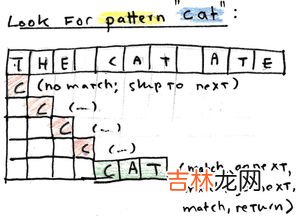 Look For pattern "cat":
T H E C A T A T E
C (no match; skip to next)
C (...)
C (...)
C (...)
C A T (match on next,
match, return)
吉林龙网